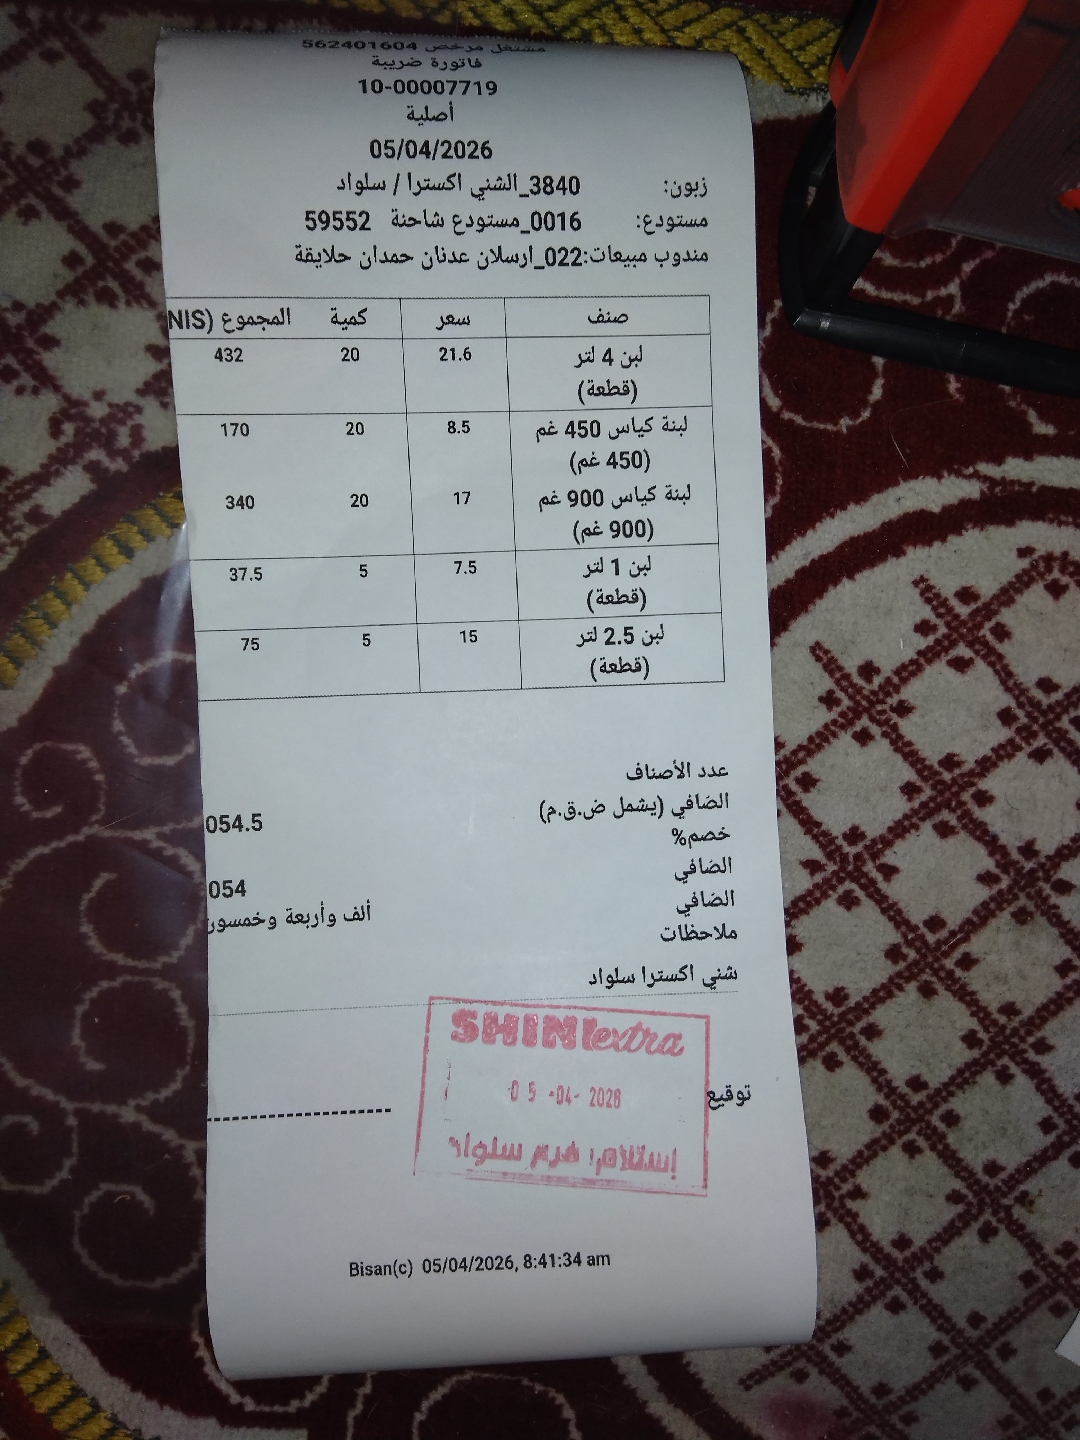 مشتغل مرخص 562401604
فاتورة ضريبة
10-00007719
أصلية
05/04/2026
زبون: 3840_الشني اكسترا / سلواد
مستودع: 0016_مستودع شاحنة 59552
مندوب مبيعات:022_ارسلان عدنان حمدان حلايقة
صنف سعر كمية المجموع (NIS
لبن 4 لتر 21.6 20 432
(قطعة)
لبنة كياس 450 غم 8.5 20 170
(450 غم)
لبنة كياس 900 غم 17 20 340
(900 غم)
لبن 1 لتر 7.5 5 37.5
(قطعة)
لبن 2.5 لتر 15 5 75
(قطعة)
عدد الأصناف
الصافي (يشمل ض.ق.م) 054.5
خصم%
الصافي 054
الصافي ألف وأربعة وخمسون
ملاحظات
شني اكسترا سلواد
SHINI extra
05-04-2026
توقيع
إستلام: فرع سلواد
Bisan(c) 05/04/2026, 8:41:34 am